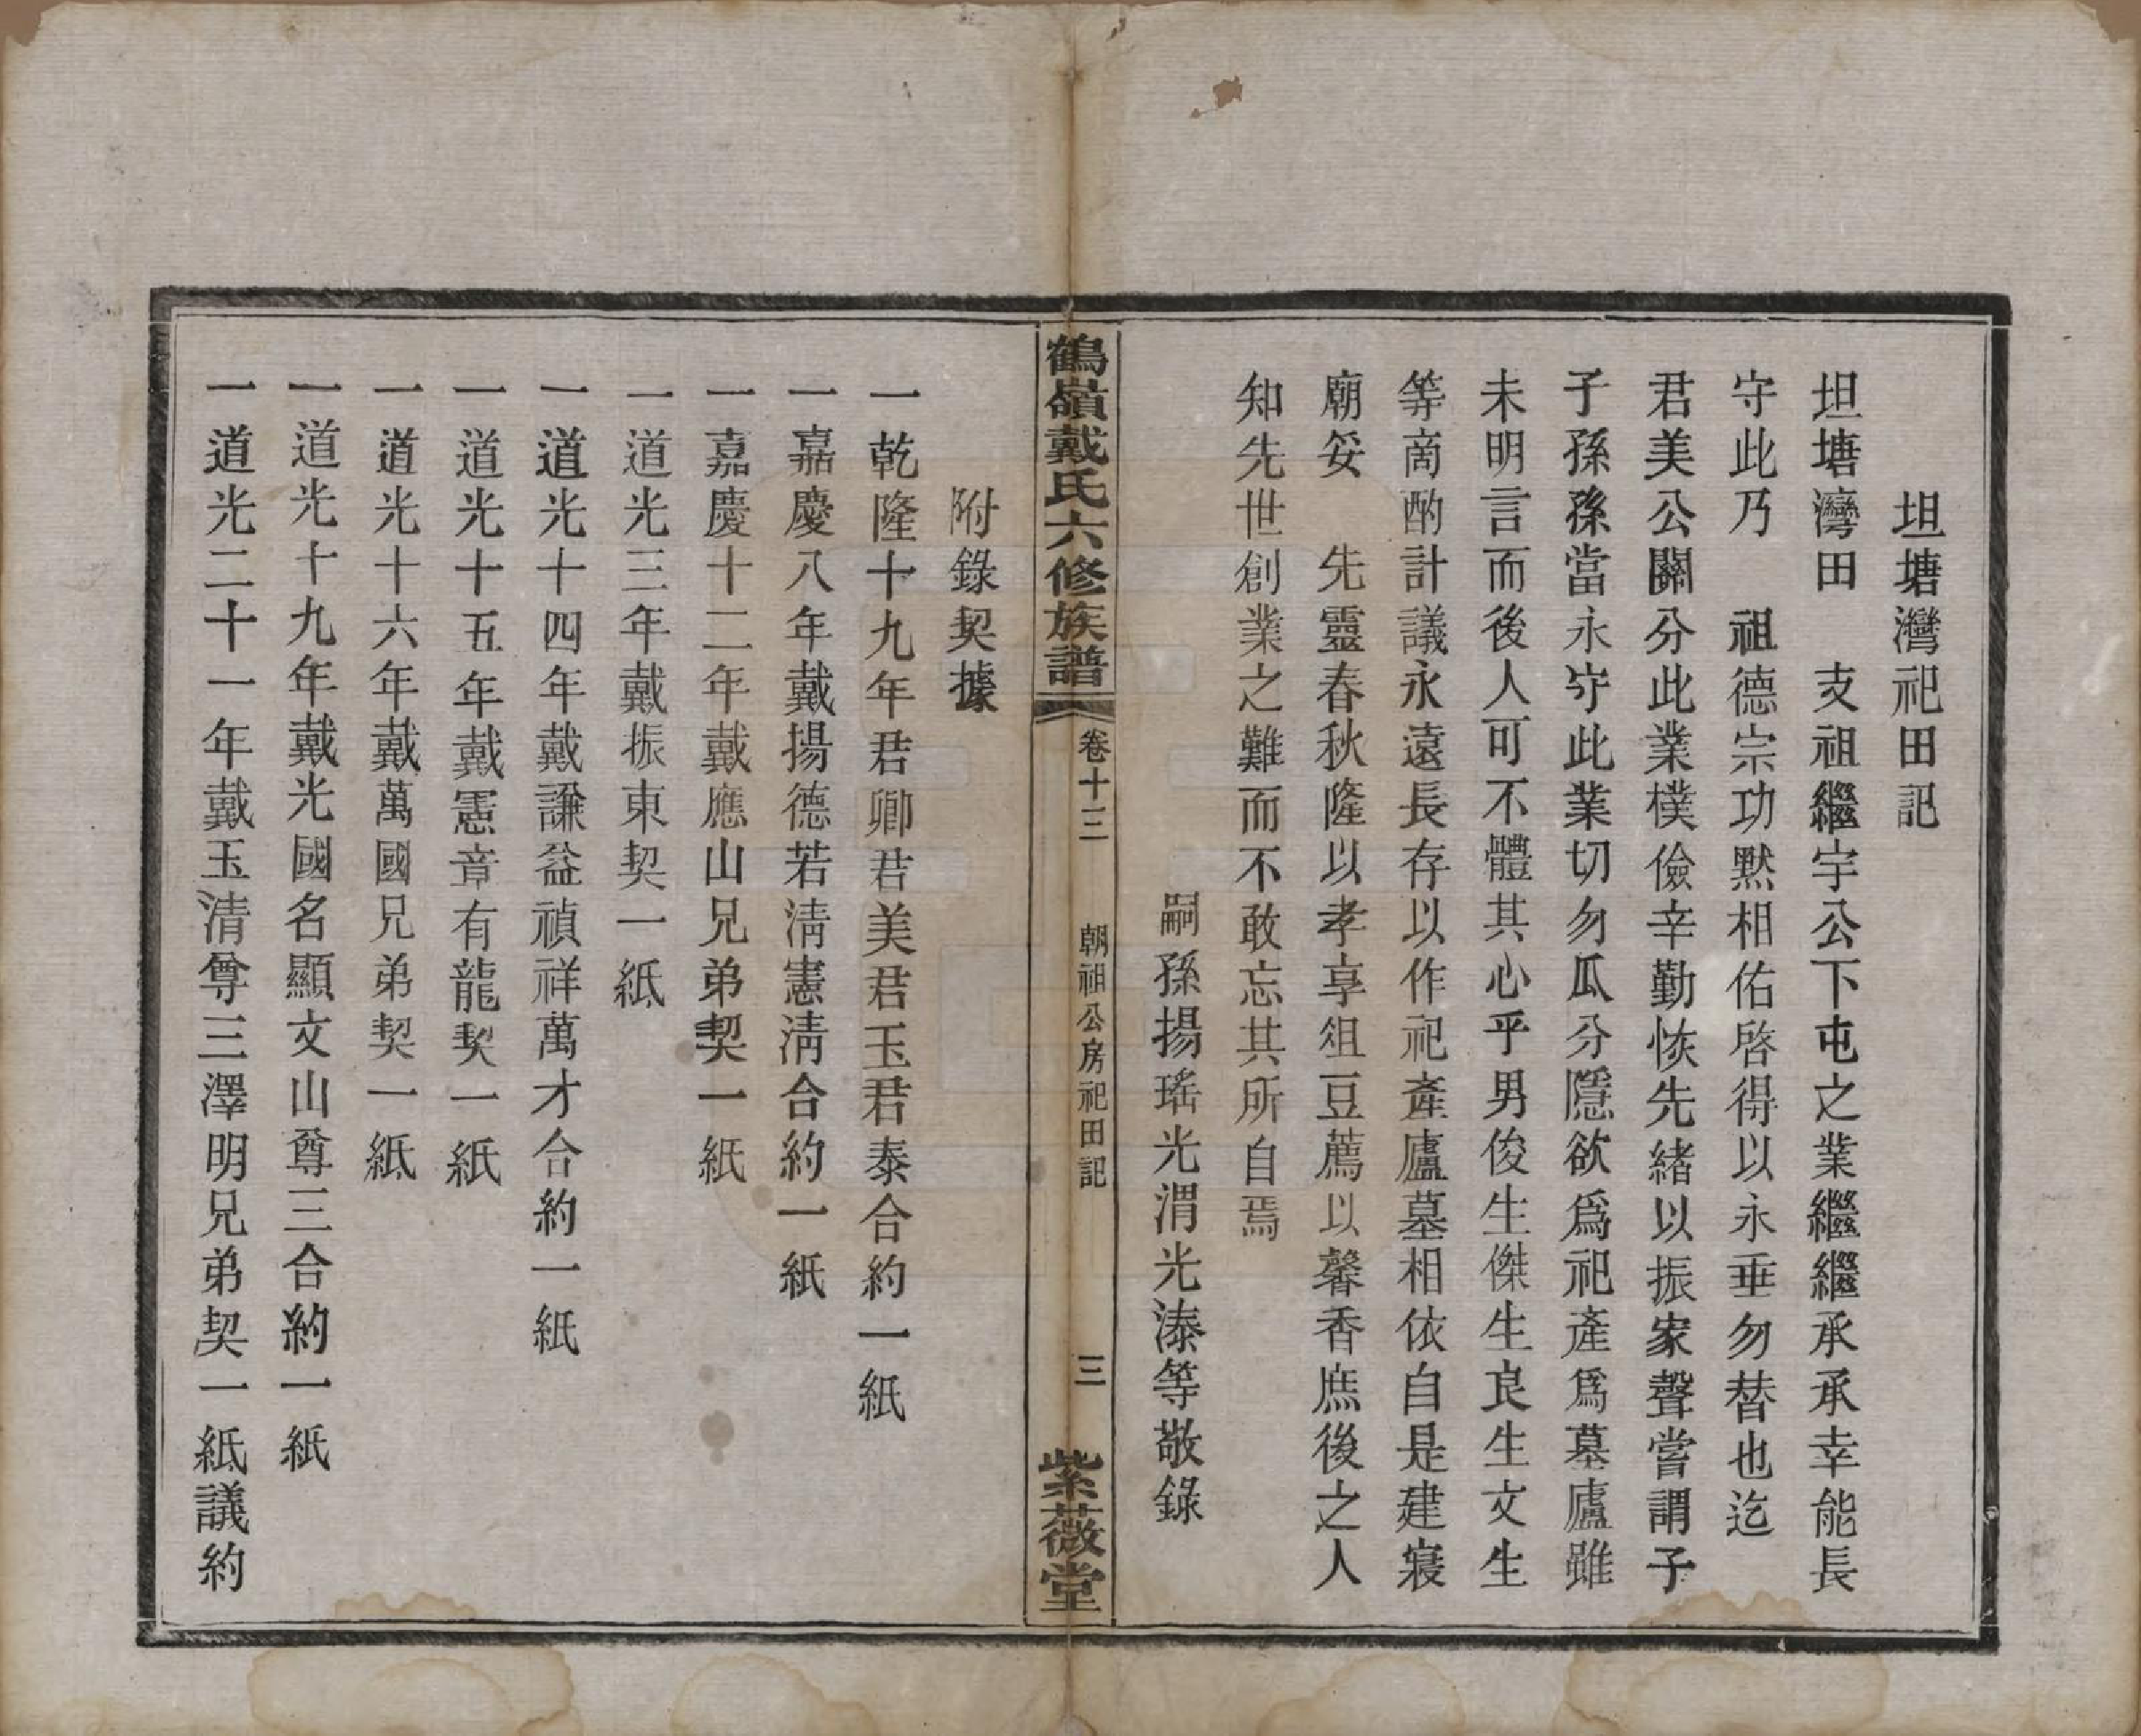 坦塘灣祀田記
坦塘灣田　支祖繼宇公下屯之業繼繼承承幸能長
守此乃　祖德宗功默相佑啓得以永垂勿替也迄
君美公鬮分此業樸儉辛勤恢先緒以振家聲嘗謂子
子孫孫當永守此業切勿瓜分隱欲爲祀產爲墓廬雖
未明言而後人可不體其心乎男俊生傑生良生文生
等商酌計議永遠長存以作祀產廬墓相依自是建寢
廟妥　先靈春秋隆以孝享俎豆薦以馨香庶後之人
知先世創業之難而不敢忘其所自焉
嗣孫揚瑤光渭光溱等敬錄
鶴嶺戴氏六修族譜　卷十三　朝祖公房祀田記　三　紫薇堂
附錄契據
一乾隆十九年君卿君美君玉君泰合約一紙
一嘉慶八年戴揚德若淸憲淸合約一紙
一嘉慶十二年戴應山兄弟契一紙
一道光三年戴振東契一紙
一道光十四年戴謙益禎祥萬才合約一紙
一道光十五年戴憲章有龍契一紙
一道光十六年戴萬國兄弟契一紙
一道光十九年戴光國名顯文山尊三合約一紙
一道光二十一年戴玉清尊三澤明兄弟契一紙議約